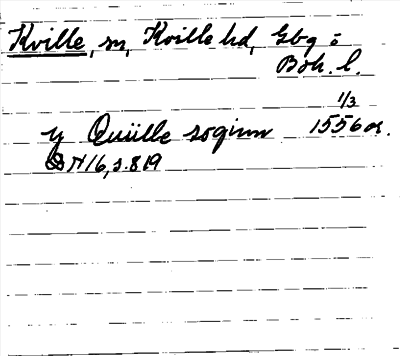 Kville, sn, Kville hd, Gbg o
Boh. l.
1/3
y Quiille soginn 1556 or.
DN 16, s. 819